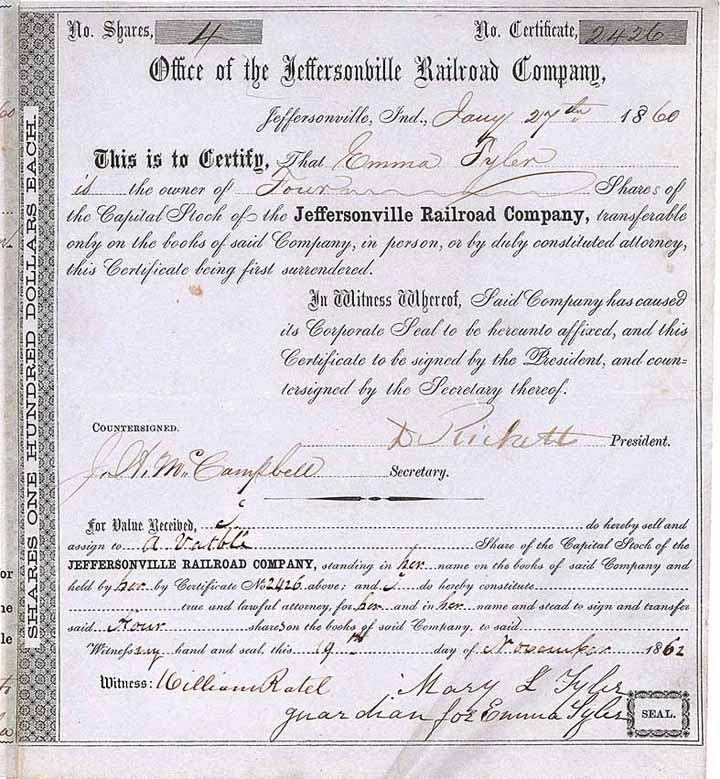 No. Shares, 4 No. Certificate, 2426
Office of the Jeffersonville Railroad Company,
Jeffersonville, Ind., Jany 27th 1860
This is to Certify, That Emma Tyler
is the owner of Four Shares of
the Capital Stock of the Jeffersonville Railroad Company, transferable
only on the books of said Company, in person, or by duly constituted attorney,
this Certificate being first surrendered.
In Witness Whereof, Said Company has caused
its Corporate Seal to be hereunto affixed, and this
Certificate to be signed by the President, and coun-
tersigned by the Secretary thereof.
COUNTERSIGNED.
D Rickett President.
J. A. McCampbell Secretary.
For Value Received, I do hereby sell and
assign to A Share of the Capital Stock of the
JEFFERSONVILLE RAILROAD COMPANY, standing in her name on the books of said Company and
held by her by Certificate No 2426 above; and I do hereby constitute
true and lawful attorney, for her and in her name and stead to sign and transfer
said Four shares on the books of said Company, to said
Witness my hand and seal, this 19th day of November 1862
Witness: William Ratel Mary L Tyler
guardian for Emma Tyler SEAL.
SHARES ONE HUNDRED DOLLARS EACH.